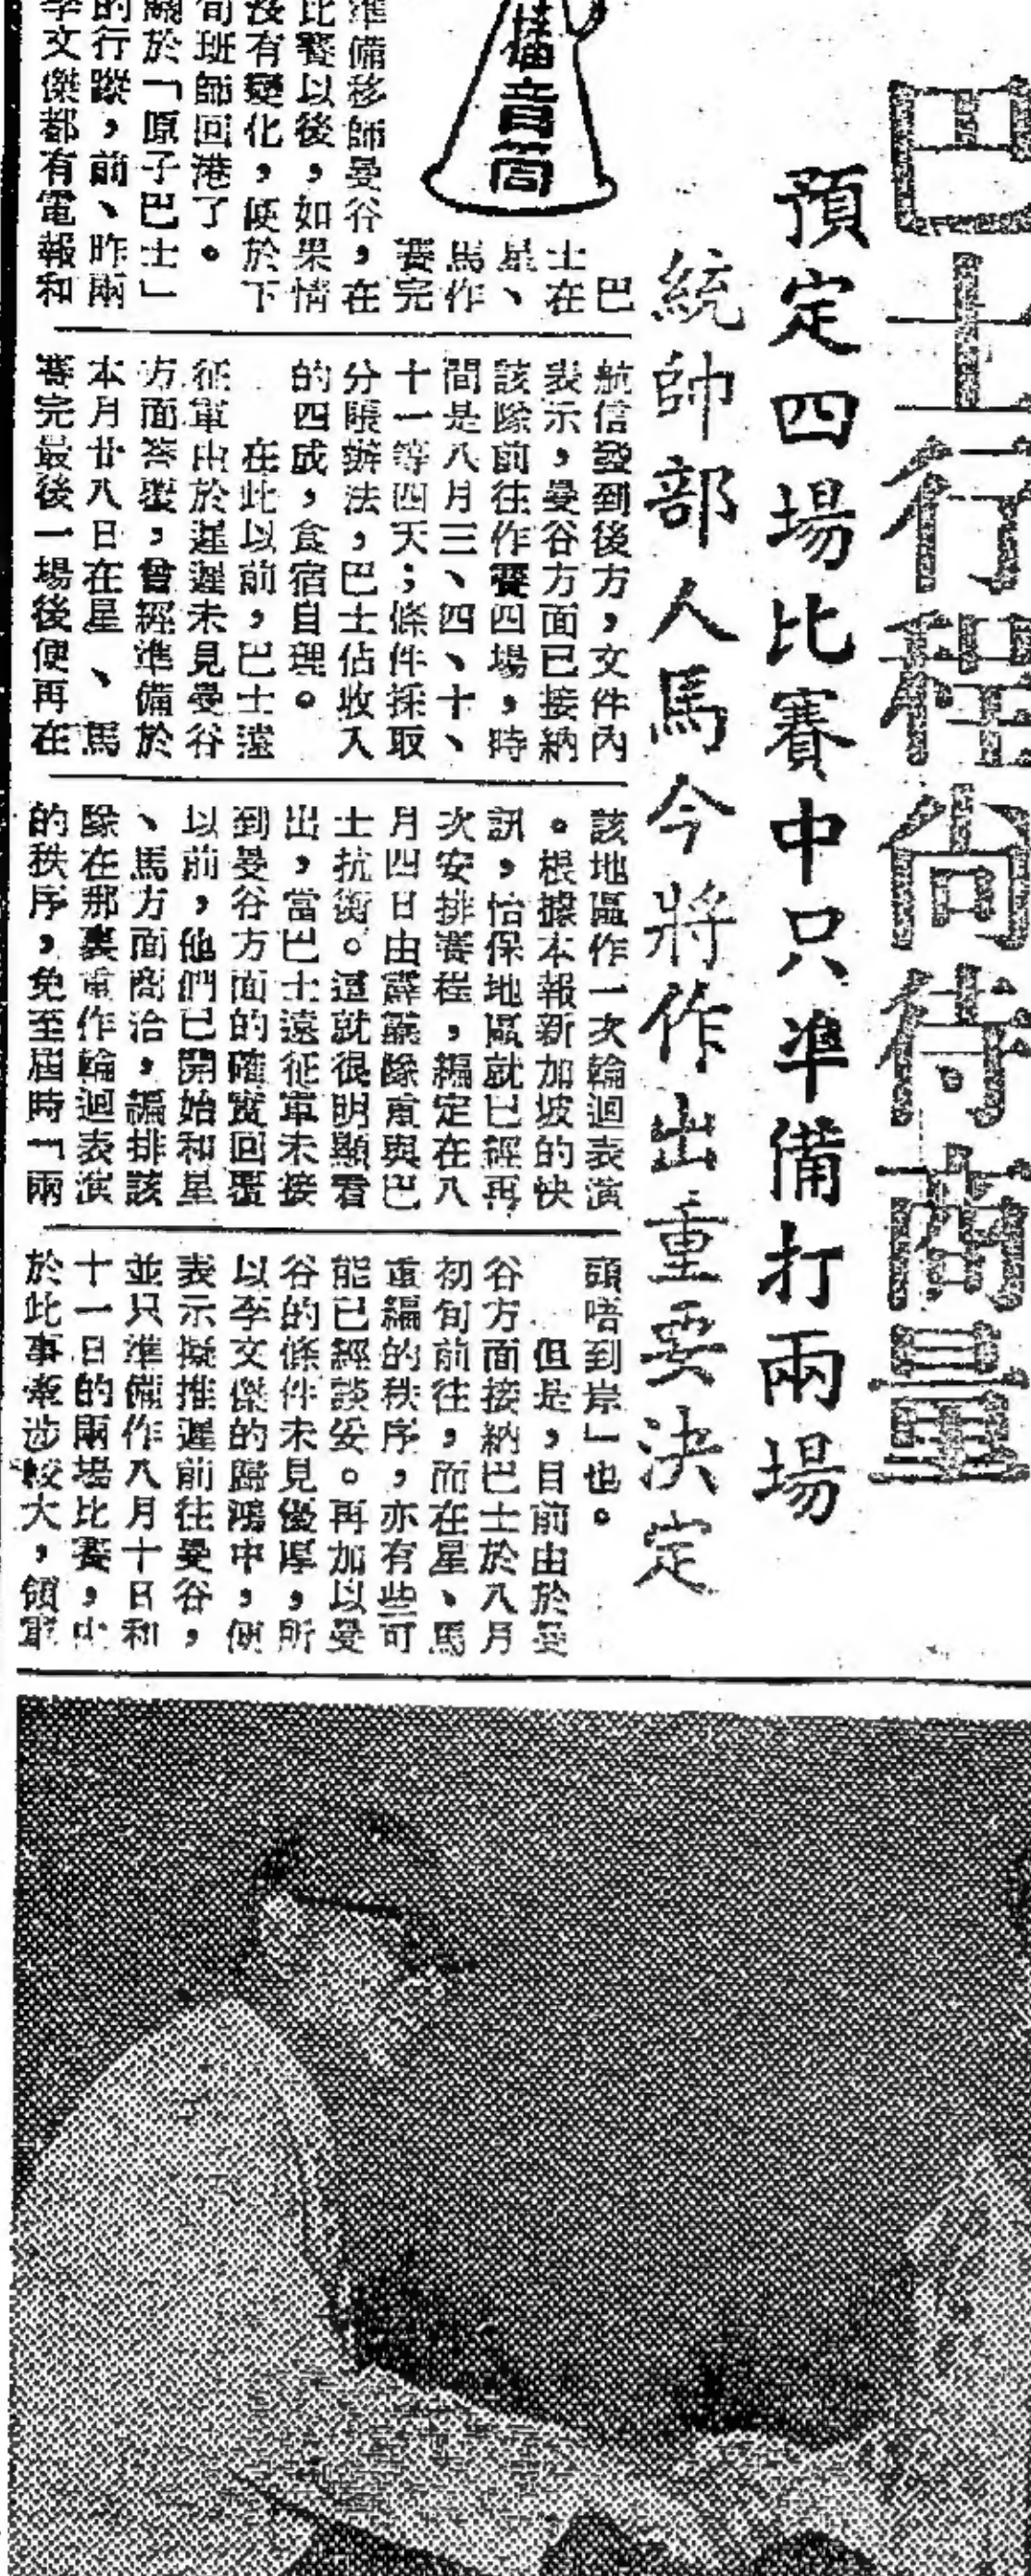 巴士行程尚待商量
預定四場比賽中只準備打兩場
統帥部人馬今將作出重要決定
播音筒
巴
士在
星、
馬作
賽完
準備移師曼谷，在
比賽以後，如果情
沒有變化，便於下
旬班師回港了。
關於「原子巴士」
的行蹤，前、昨兩
李文傑都有電報和
航信發到後方，文件內
表示，曼谷方面已接納
該隊前往作賽四場，時
間是八月三、四、十、
十一等四天；條件採取
分賬辦法，巴士佔收入
的四成，食宿自理。
在此以前，巴士遠
征軍由於遲遲未見曼谷
方面答覆，曾經準備於
本月廿八日在星、馬
賽完最後一場後便再在
該地區作一次輪迴表演
。根據本報新加坡的快
訊，怡保地區就已經再
次安排賽程，編定在八
月四日由霹靂隊重與巴
士抗衡。這就很明顯看
出，當巴士遠征軍未接
到曼谷方面的確實回覆
以前，他們已開始和星
、馬方面商洽，編排該
隊在那裏重作輪迴表演
的秩序，免至屆時「兩
頭唔到岸」也。
但是，目前由於曼
谷方面接納巴士於八月
初旬前往，而在星、馬
重編的秩序，亦有些可
能已經談妥。再加以曼
谷的條件未見優厚，所
以李文傑的歸鴻中，便
表示擬推遲前往曼谷，
並只準備作八月十日和
十一日的兩場比賽，由
於此事牽涉較大，領軍